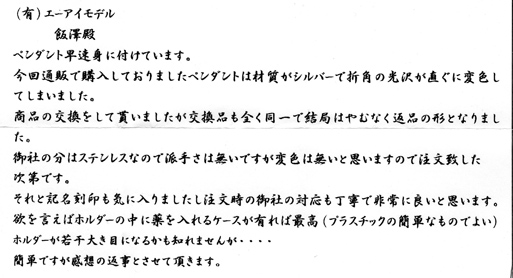 (有)エーアイモデル
飯澤殿
ペンダント早速身に付けています。
今回通販で購入しておりましたペンダントは材質がシルバーで折角の光沢が直ぐに変色し
てしまいました。
商品の交換をして貰いましたが交換品も全く同一で結局はやむなく返品の形となりまし
た。
御社の分はステンレスなので派手さは無いですが変色は無いと思いますので注文致した
次第です。
それと記名刻印も気に入りましたし注文時の御社の対応も丁寧で非常に良いと思います。
欲を言えばホルダーの中に薬を入れるケースが有れば最高(プラスチックの簡単なものでよい)
ホルダーが若干大き目になるかも知れませんが・・・・
簡単ですが感想の返事とさせて頂きます。